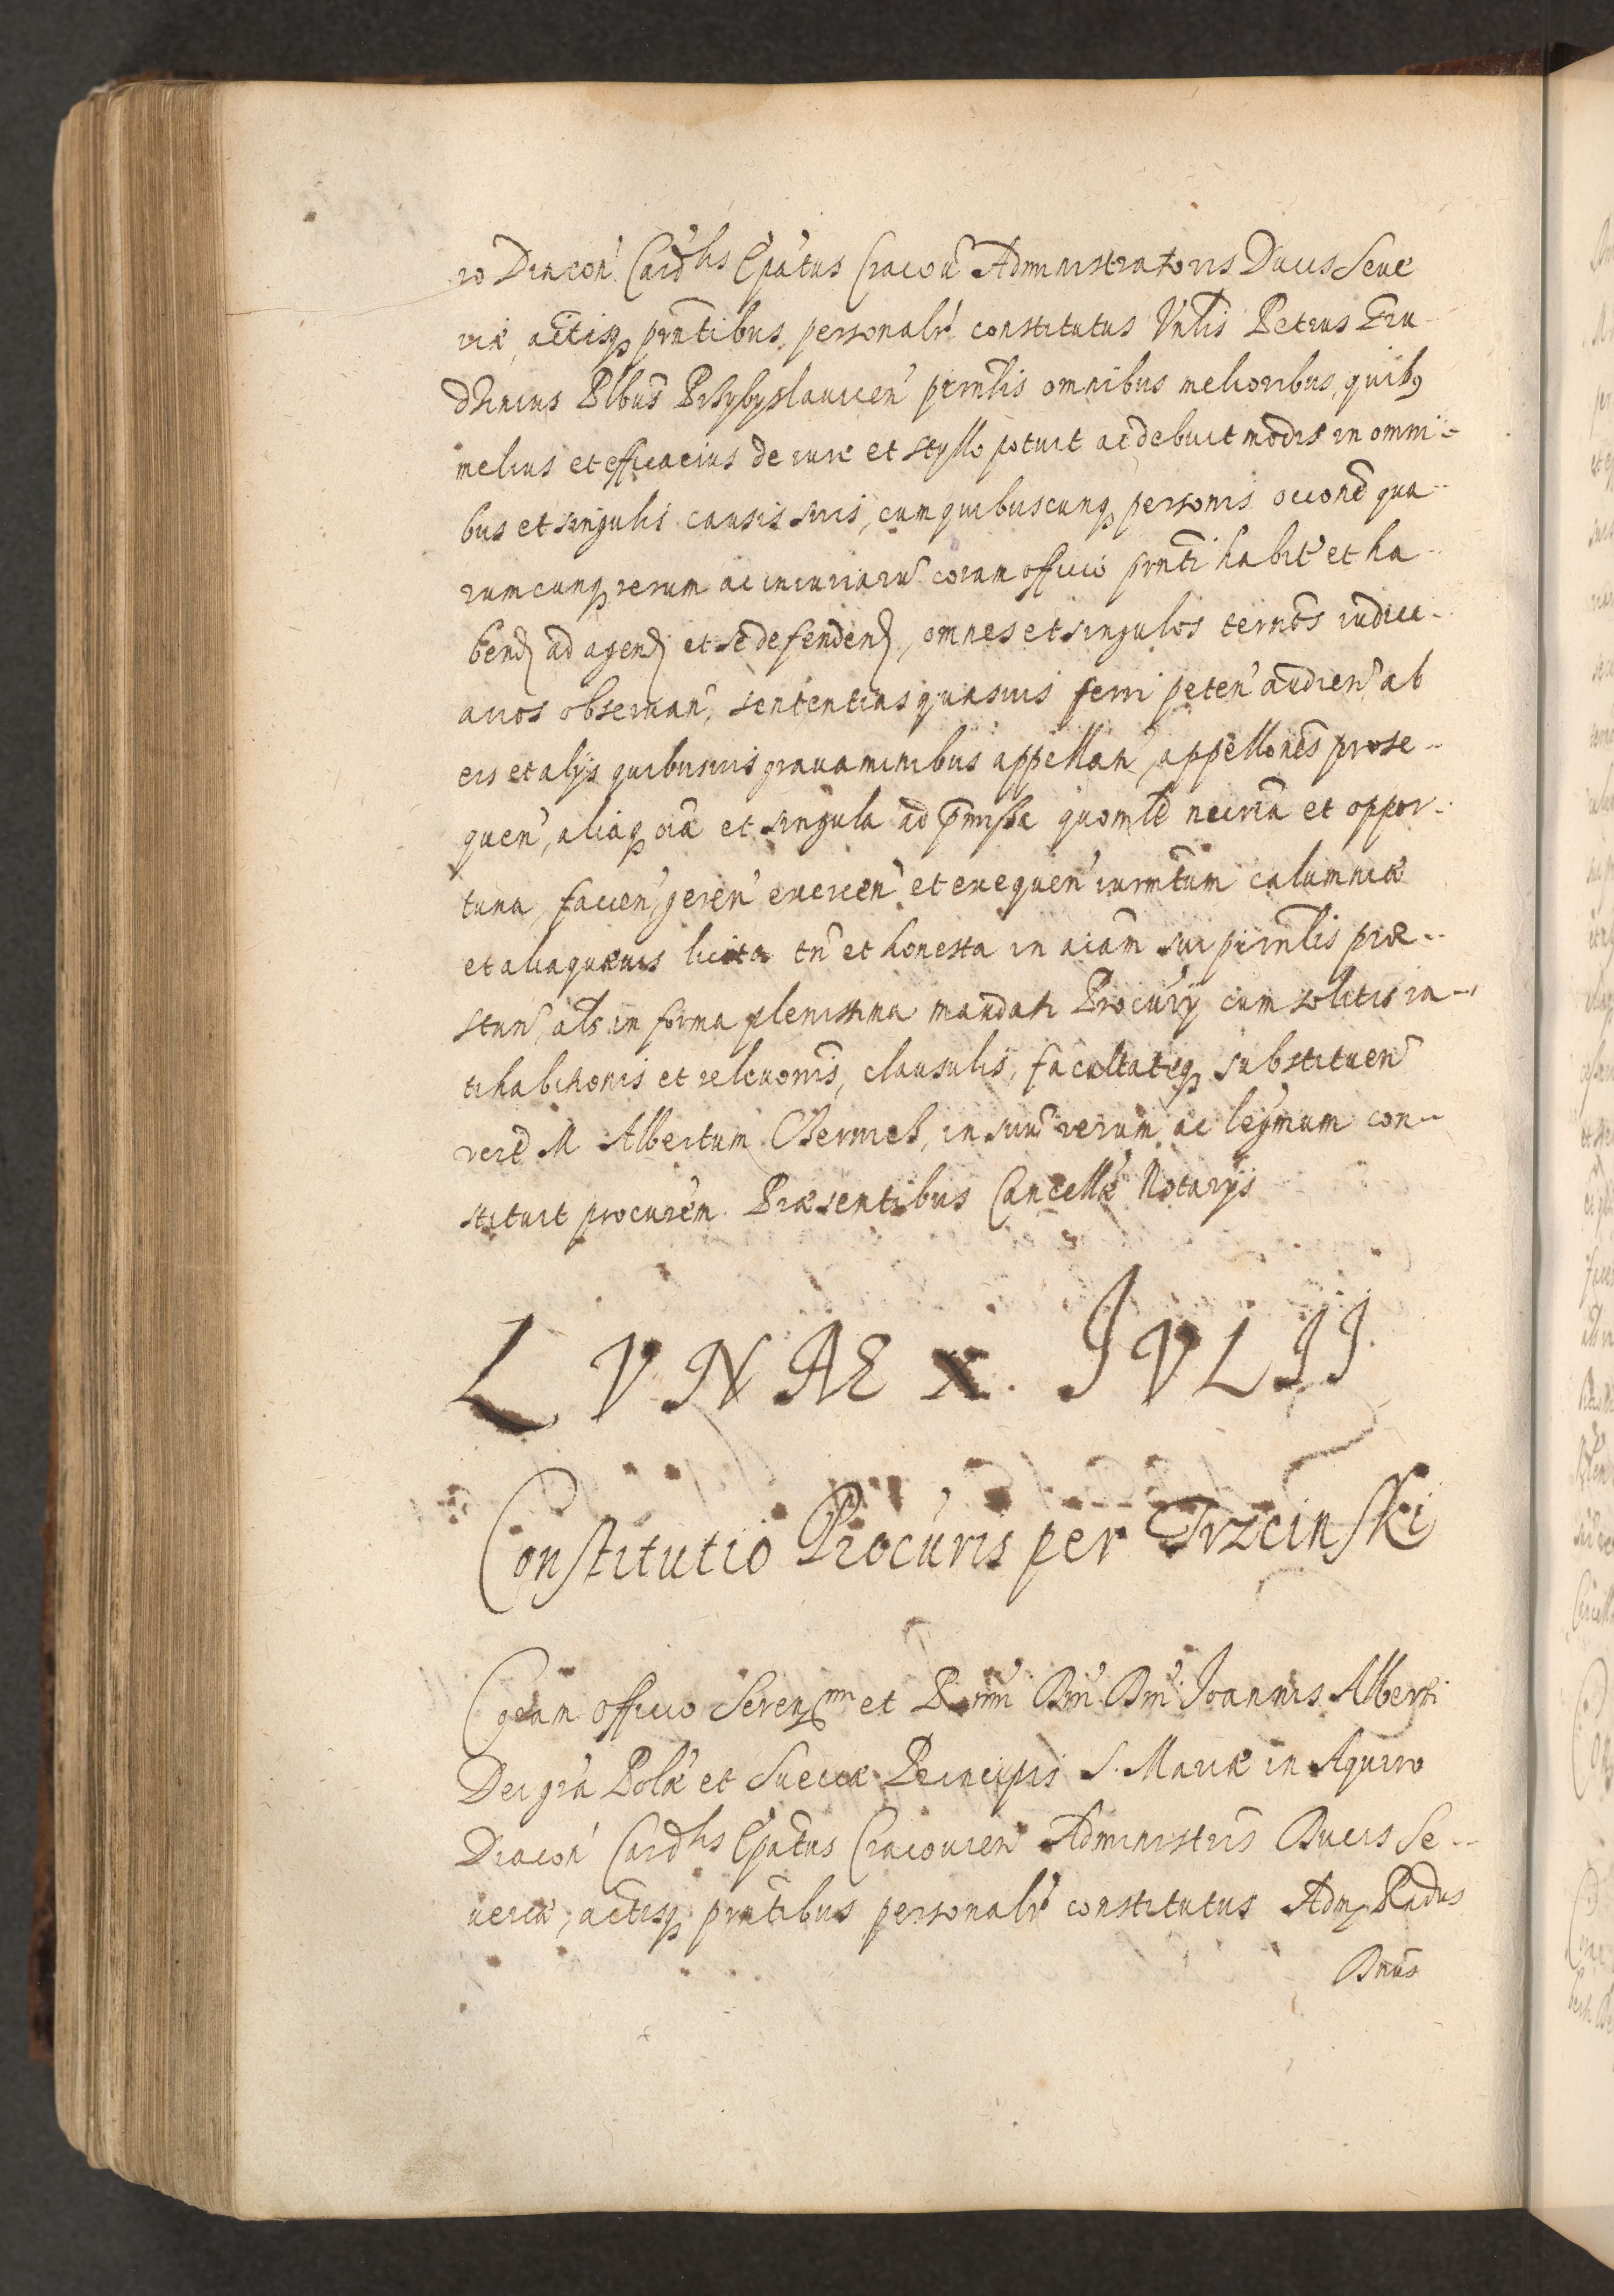 ro Diacon Cardlis Epatus Cracou Administratoris Ducis Seue
riæ, actisq pntibus personalr constitutus Vnlis Petrus Gru
dzinius Plbus Przybyslauicen prnlis omnibus melioribus, quibq
melius et efficacius de iure et styllo potuit ac debuit modis in omni-
bus et singulis causis suis, cum quibuscunq personis occone qua-
rumcunq rerum ac iniuriaru coram officio pnti habit et ha-
bend ad agend et se defendend, omnes et singulos termos iudici-
arios obseruan, sententias quasuis ferri peten audien ab
eis et alijs quibusuis grauaminibus appellan, appellones prose-
quen, aliaq oia et singula ad pmissa quomlt necria et oppor-
tuna, facien, geren exercen et exequen iurmtum calumniæ
et alia quæuis licita tn et honesta in aiam sui prnlis præ-
stan, als in forma plenissima mandati Procurÿ cum solitis ra-
tihabitionis et releuonis, clausulis, facultateq substituen
vend M Albertum Chermes, in suu verum ac legmum con-
stituit procurem. Præsentibus Cancellæ Notarÿs
LVNAE X. IVLII
Constitutio Procuris per Trzcinski
Coram officio Serenssmi et Rmi Dni Dni Joannis Alberti
Dei gra Polæ et Sueciæ Principis S. Mariæ in Aquiro
Diacon Cardlis Epatus Cracouien Administris Ducis Se-
ueriæ, actisq pntibus personalr constitutus Adm Randus
Dnus